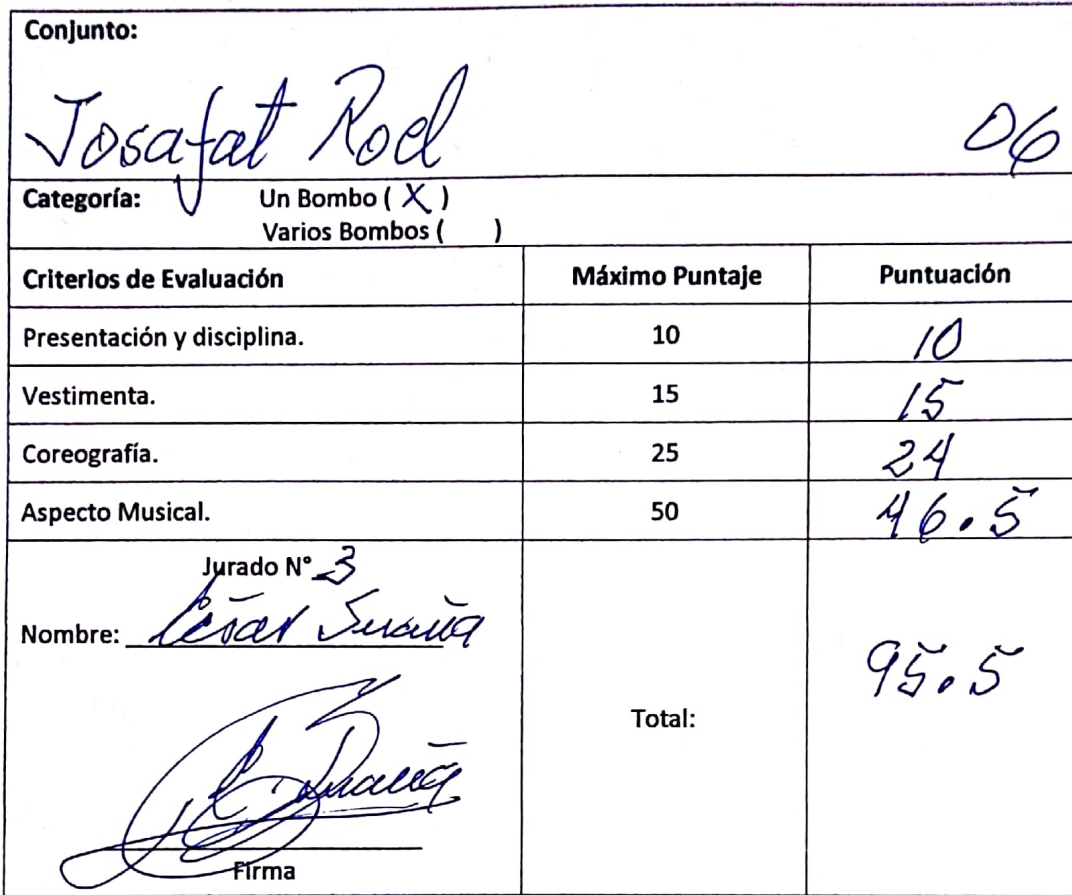 Conjunto:
Josafat Roel 06
Categoría: Un Bombo ( X )
Varios Bombos ( )
Criterios de Evaluación Máximo Puntaje Puntuación
Presentación y disciplina. 10 10
Vestimenta. 15 15
Coreografía. 25 24
Aspecto Musical. 50 46.5
Jurado N° 3
Nombre: César Suaña
Total: 95.5
Firma